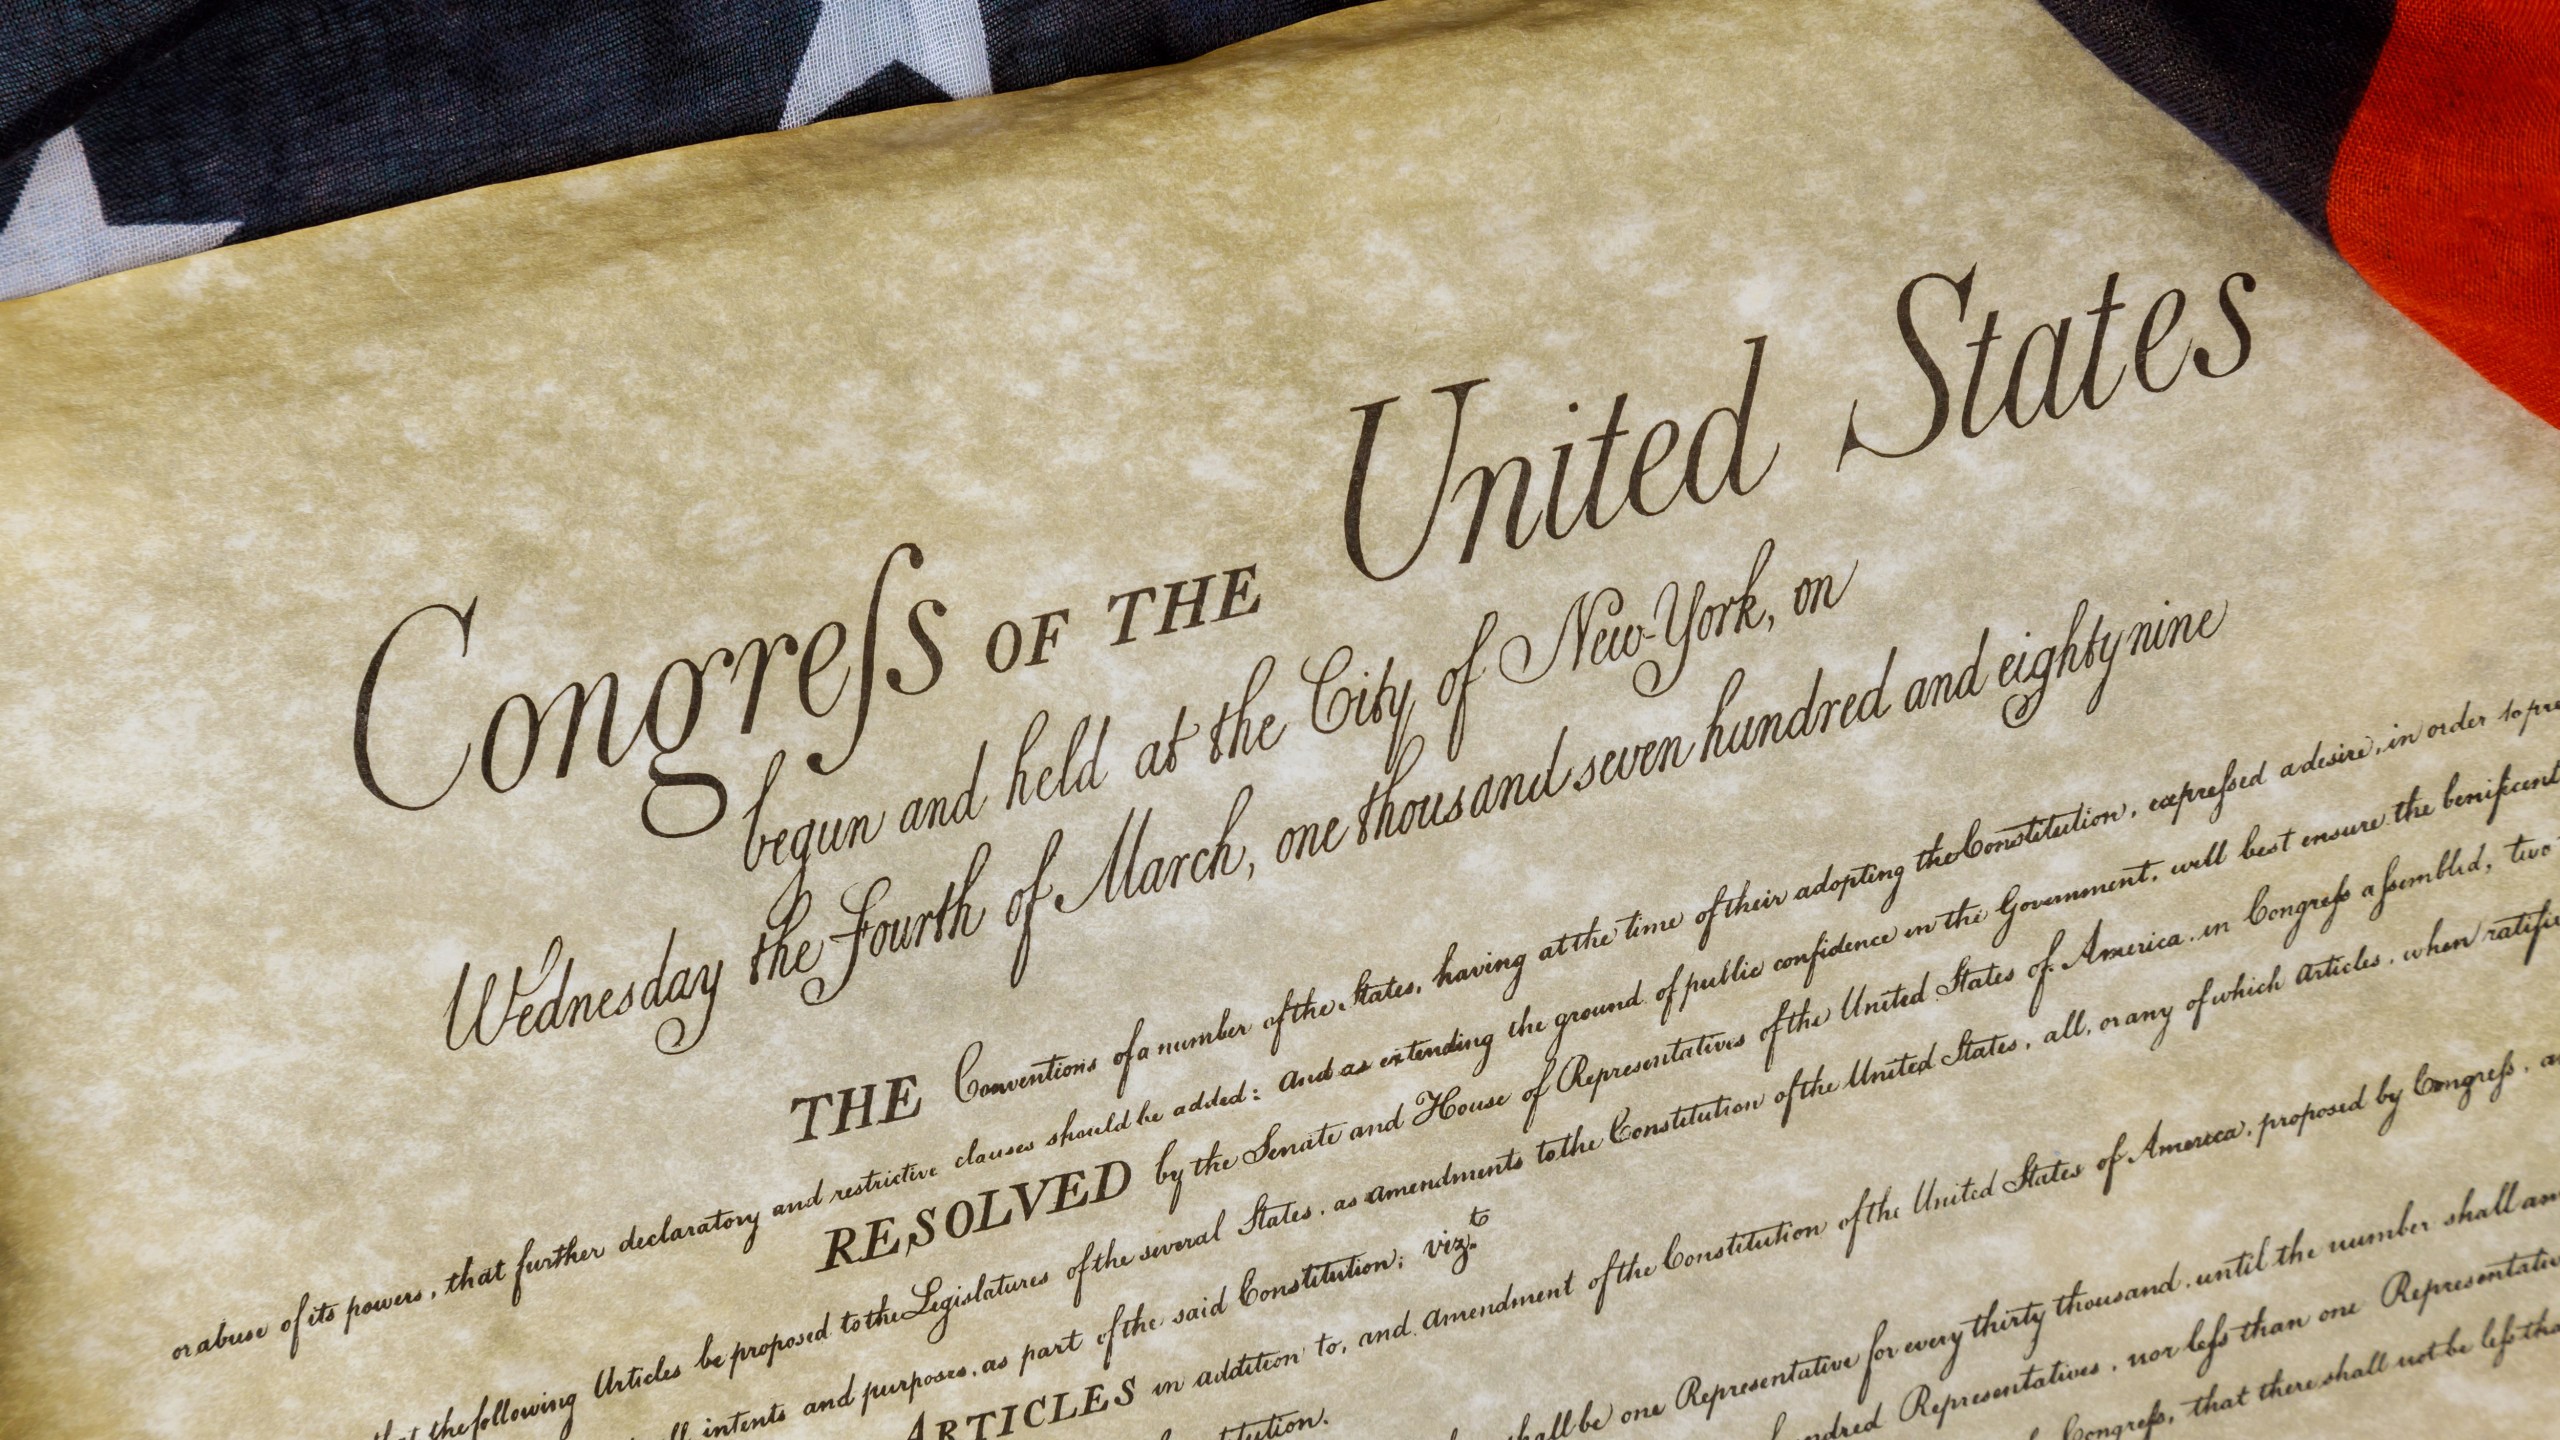 Congreſs OF THE United States
begun and held at the City of New-York, on
Wednesday the Fourth of March, one thousand seven hundred and eighty nine
THE Conventions of a number of the States, having at the time of their adopting the Constitution, expreſsed a desire, in order to pre
or abuse of its powers, that further declaratory and restrictive clauses should be added: And as extending the ground of public confidence in the Government, will best ensure the benificent
RESOLVED by the Senate and House of Representatives of the United States of America, in Congreſs aſsembled, two
that the following Articles be proposed to the Legislatures of the several States, as amendments to the Constitution of the United States, all, or any of which Articles, when ratifie
all intents and purposes, as part of the said Constitution; vizt.
ARTICLES in addition to, and amendment of the Constitution of the United States of America, proposed by Congreſs, a
tution.
shall be one Representative for every thirty thousand, until the number shall am
ndred Representatives, nor leſs than one Representative
Congreſs, that there shall not be leſs tha